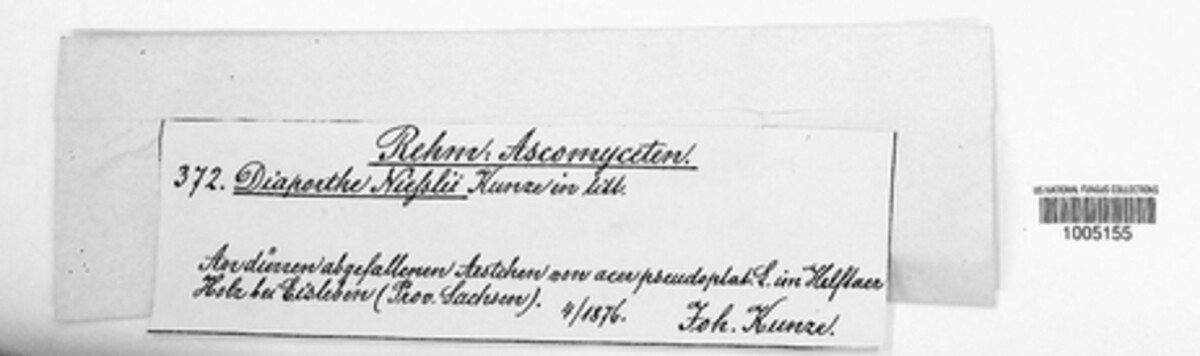 Rehm: Ascomyceten.
372. Diaporthe Nießlii Kunze in litt.
An dürren abgefallenen Aestchen von acer pseudoplat. L. im Helftaer
Holz bei Eisleben (Prov. Sachsen).
4/1876. Joh. Kunze.
US NATIONAL FUNGUS COLLECTIONS
1005155